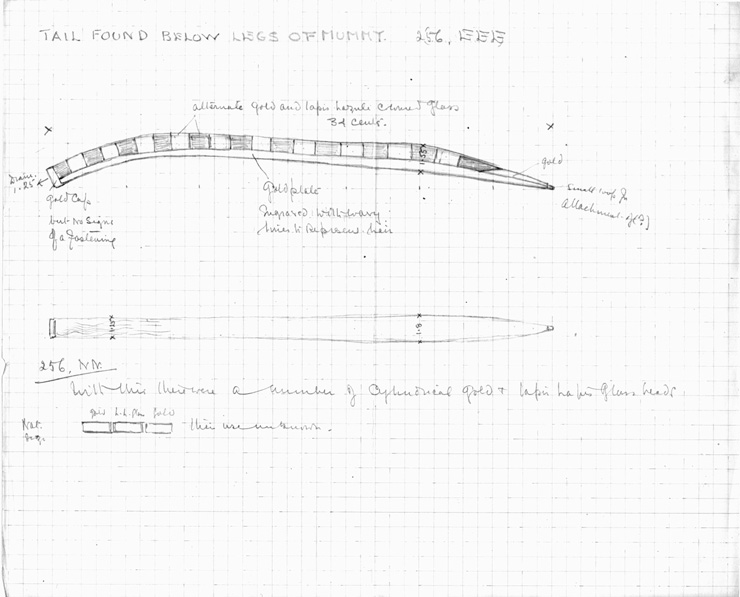 TAIL FOUND BELOW LEGS OF MUMMY. 256, EEE
alternate gold and lapis lazuli coloured glass
34 cents.
gold
Diam.
1.25
gold Cap
but no signs
of a fastening
gold plate
Engraved with wavy
lines to represent hair
small loop for
attachment of (?)
1.8
256, NN.
With this there were a number of cylindrical gold + lapis glass beads.
gold gold
Nat.
their use unknown.